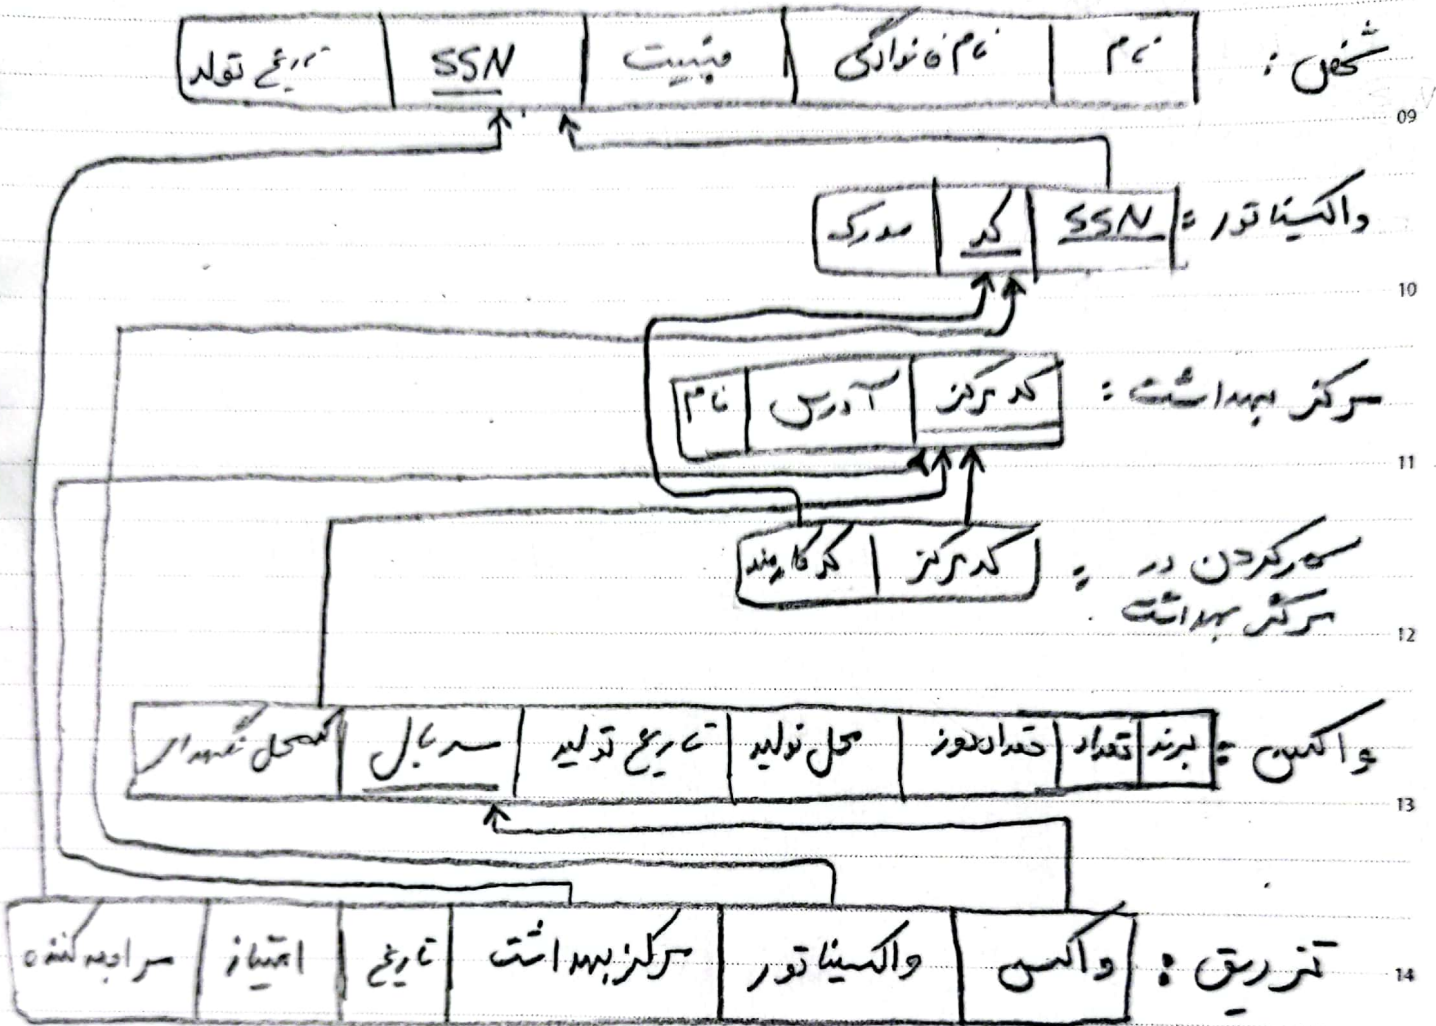 شخص : نام نام خانوادگی جنسیت SSN تاریخ تولد
09
واکسیناتور : SSN کد مدرک
10
مرکز بهداشت : کد مرکز آدرس نام
11
کار کردن در مرکز بهداشت : کد مرکز کد کارمند
12
واکسن : برند تعداد تعداد دوز محل تولید تاریخ تولید سریال محل نگهداری
13
تزریق : واکسن واکسیناتور مرکز بهداشت تاریخ امتیاز مراجعه کننده
14